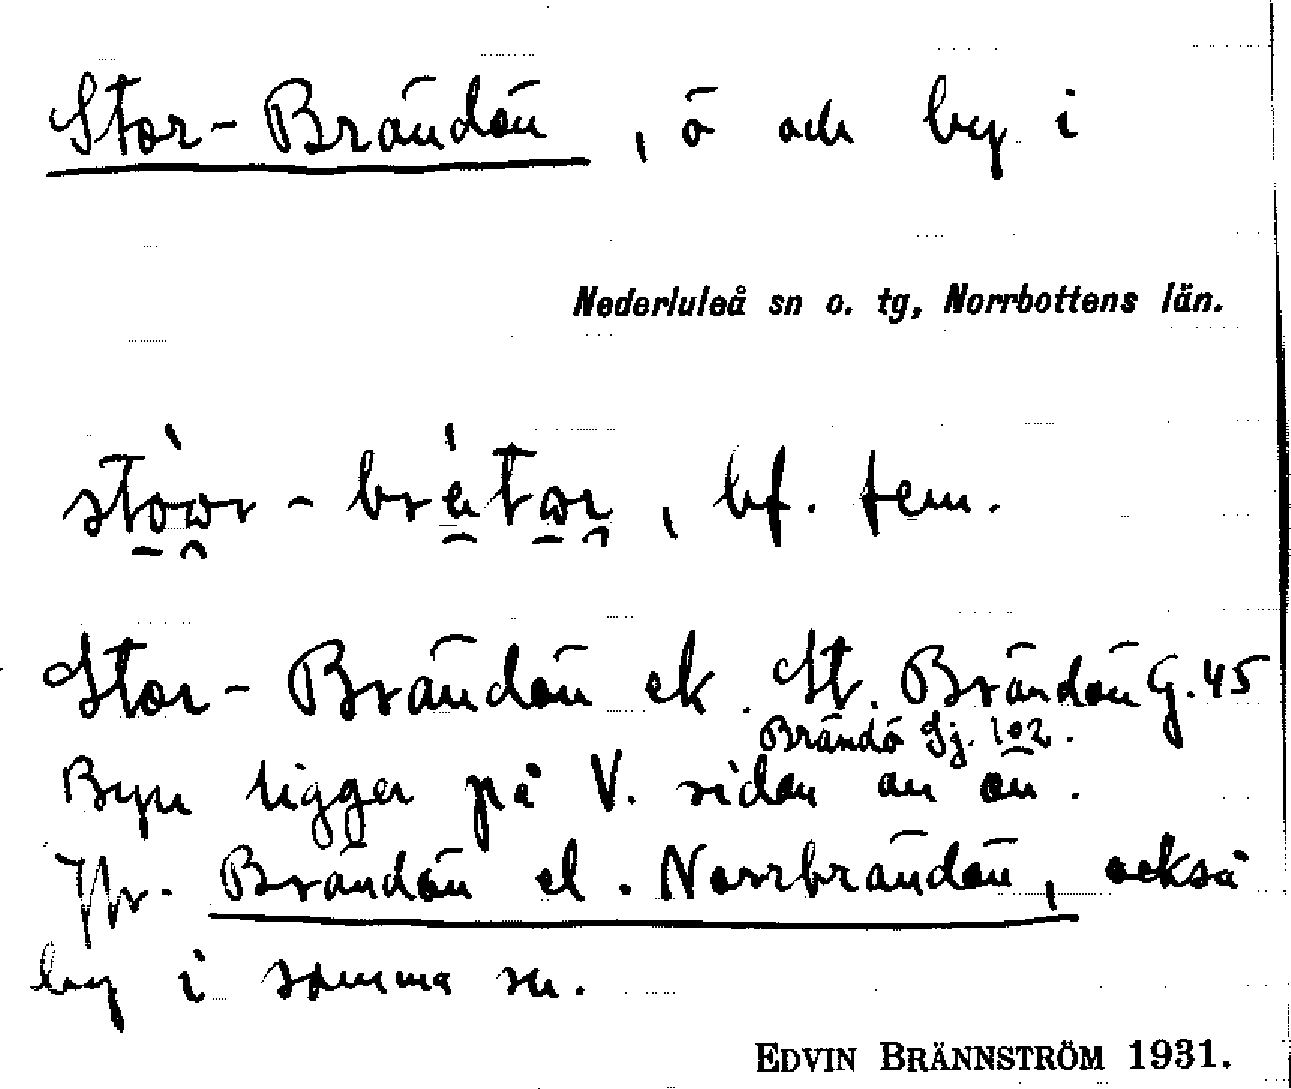 Stor-Brändön, ö och by i
Nederluleå sn o. tg, Norrbottens län.
bf. fem.
Stor-Brändön ek. St. Brändön G. 45
Brändö Sj. 102.
Byn ligger på V. sidan av ön.
Jfr. Brändön el. Norrbrändön, också
by i samma sn.
EDVIN BRÄNNSTRÖM 1931.